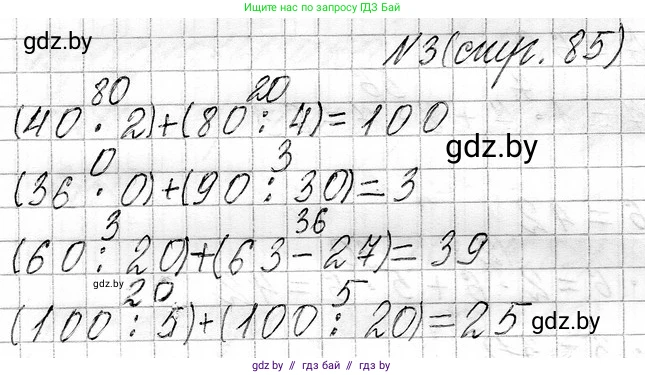 Ищите нас по запросу ГДЗ Бай
gdz.by
N3 (стр. 85)
80 20
(40 · 2) + (80 : 4) = 100
gdz.by
0 3
(36 · 0) + (90 : 30) = 3
3 36
(60 : 20) + (63 - 27) = 39
gdz.by
20 5
(100 : 5) + (100 : 20) = 25
gdz.by
gdz.by // гдз бай // гдз.by